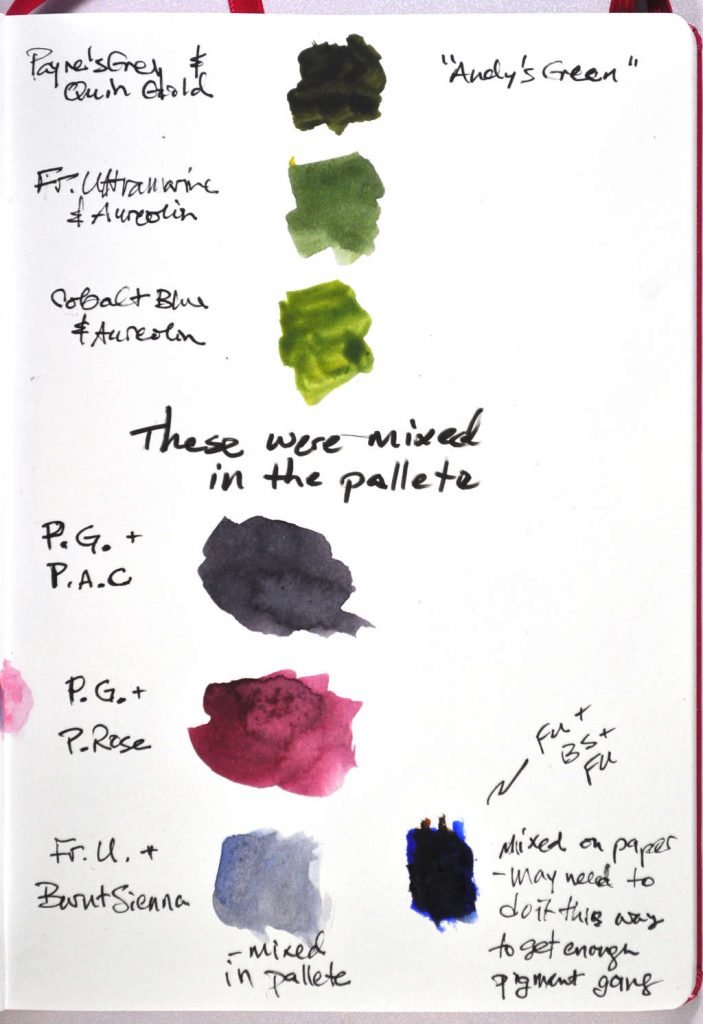 Payne's Grey &
Quin Gold
"Andy's Green"
Fr. Ultramarine
& Aureolin
Cobalt Blue
& Aureolin
These were mixed
in the pallete
P.G. +
P.A.C
P.G. +
P.Rose
FU +
BS +
FU
Fr. U. +
Burnt Sienna
- mixed
in pallete
Mixed on paper
- may need to
do it this way
to get enough
pigment going